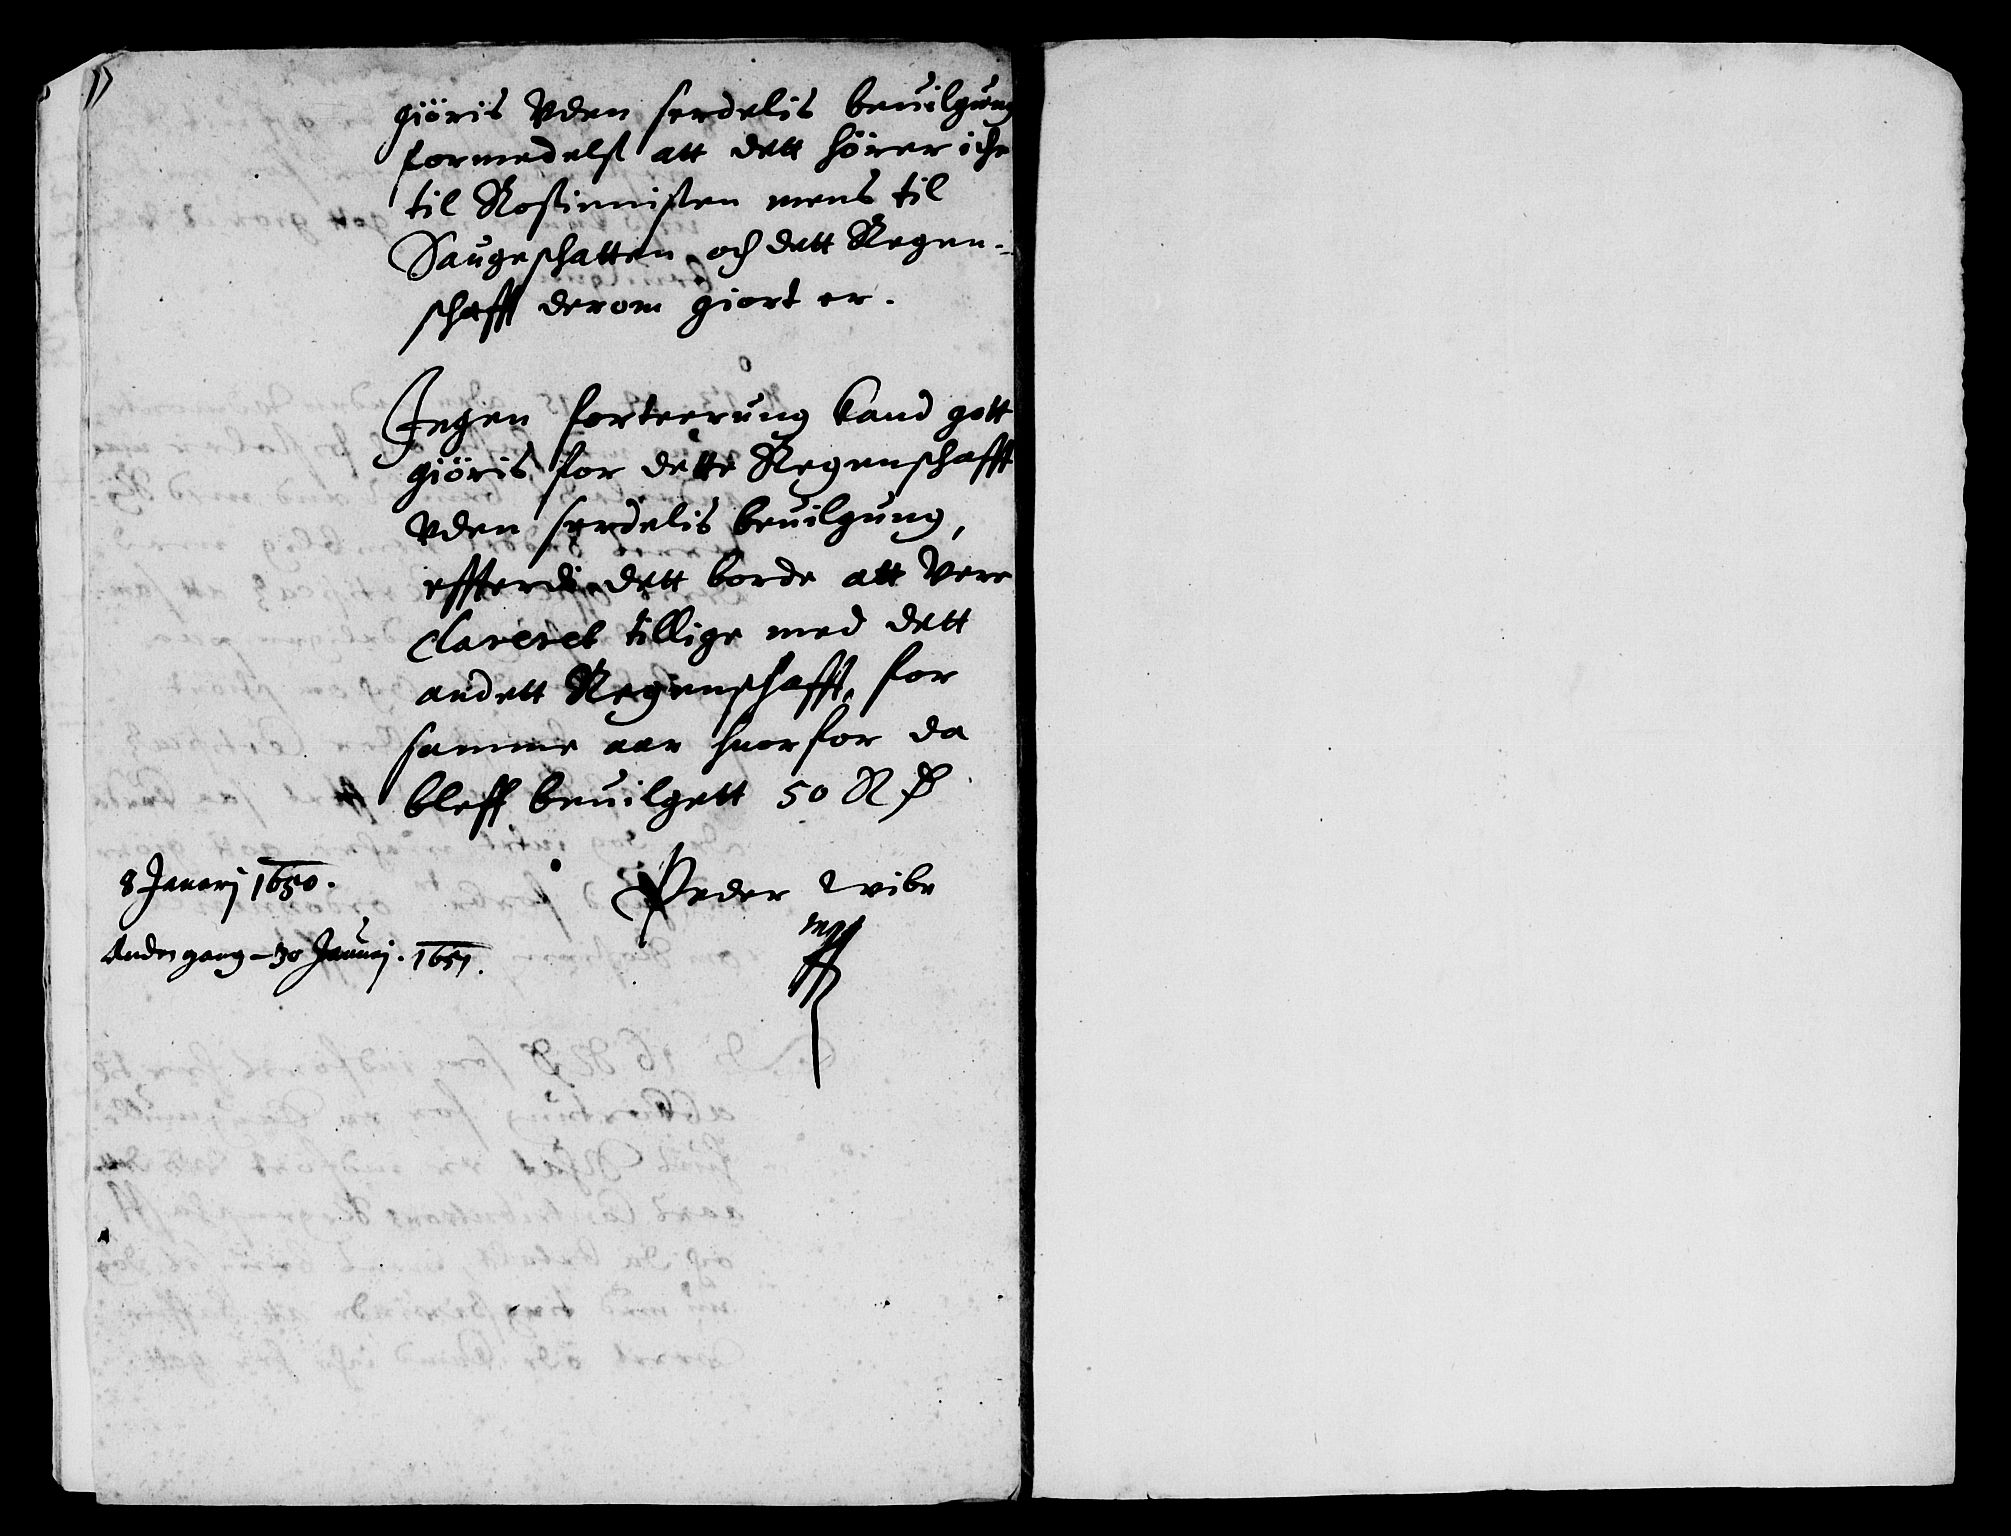 giöris Vden serdelis beuilgung
formedelst att dett hörer iche
til Rostienisten mens til
Saugeschatten och dett Regen-
schafft derom giort er.
Ingen forteerung kand gott
giöris for dette Regenschafft
Vden serdelis beuilgung,
effterdi dett borde att Vere
Clareret tillige med dett
andett Regenschafft, for
samme aar huorfor da
bleff beuilgett 50 R
8 Januarj 1650.
Peder Wibe
Anden gang - 30 Januarj. 1651.
mpp